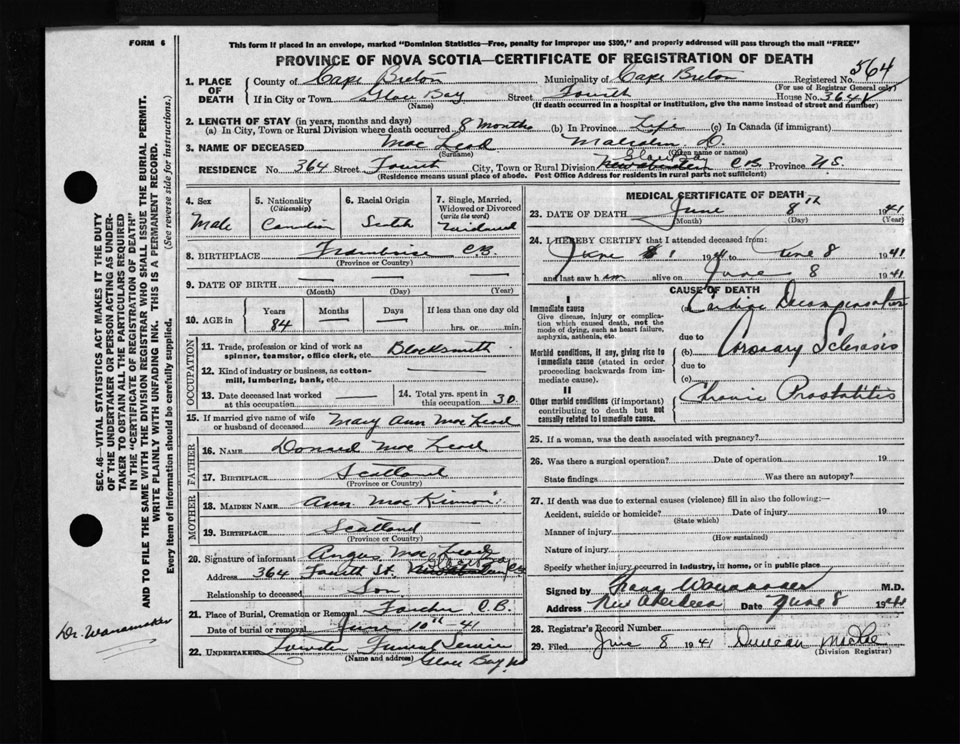 FORM 6
This form if placed in an envelope, marked "Dominion Statistics—Free, penalty for improper use $300," and properly addressed will pass through the mail "FREE"
PROVINCE OF NOVA SCOTIA—CERTIFICATE OF REGISTRATION OF DEATH
Registered No. 564
(For use of Registrar General only)
1. PLACE OF DEATH
County of Cape Breton Municipality of Cape Breton
If in City or Town Glace Bay Street Fourth House No. 364
(Name) (If death occurred in a hospital or institution, give the name instead of street and number)
2. LENGTH OF STAY (in years, months and days)
(a) In City, Town or Rural Division where death occurred 8 months (b) In Province Life (c) In Canada (if immigrant)
3. NAME OF DECEASED Mac Leod Malcolm
(Surname) (Given name or names)
RESIDENCE No. 364 Street Fourth City, Town or Rural Division Glace Bay C.B. Province N.S.
(Residence means usual place of abode. Post Office Address for residents in rural parts not sufficient)
4. Sex
Male
5. Nationality
(Citizenship)
Canadian
6. Racial Origin
Scotch
7. Single, Married, Widowed or Divorced
(write the word)
Widowed
8. BIRTHPLACE Framboise C.B.
(Province or Country)
9. DATE OF BIRTH
(Month) (Day) (Year)
10. AGE in Years Months Days If less than one day old
84 hrs. or min.
OCCUPATION
11. Trade, profession or kind of work as spinner, teamster, office clerk, etc. Blacksmith
12. Kind of industry or business, as cotton-mill, lumbering, bank, etc.
13. Date deceased last worked at this occupation
14. Total yrs. spent in this occupation 30
15. If married give name of wife or husband of deceased Mary Ann Mac Leod
FATHER
16. NAME Donald Mac Leod
17. BIRTHPLACE Scotland
(Province or Country)
MOTHER
18. MAIDEN NAME Ann Mac Kinnon
19. BIRTHPLACE Scotland
(Province or Country)
20. Signature of informant Angus Mac Leod
Address 364 Fourth St. C.B.
Relationship to deceased Son
21. Place of Burial, Cremation or Removal C.B.
Date of burial or removal June 10th -41
22. UNDERTAKER Funeral Service
(Name and address) Glace Bay
MEDICAL CERTIFICATE OF DEATH
23. DATE OF DEATH June 8th 1941
(Month) (Day) (Year)
24. I HEREBY CERTIFY that I attended deceased from:
June 1 1941 to June 8 1941
and last saw him alive on June 8 1941
CAUSE OF DEATH
I
Immediate cause
Give disease, injury or complication which caused death, not the mode of dying, such as heart failure, asphyxia, asthenia, etc.
Cardiac Decompensation
due to
Morbid conditions, if any, giving rise to immediate cause (stated in order proceeding backwards from immediate cause).
(b) Coronary Sclerosis
due to
(c)
II
Other morbid conditions (if important) contributing to death but not causally related to immediate cause.
Chronic Prostatitis
25. If a woman, was the death associated with pregnancy?
26. Was there a surgical operation? Date of operation 19
State findings Was there an autopsy?
27. If death was due to external causes (violence) fill in also the following:—
Accident, suicide or homicide? Date of injury 19
(State which)
Manner of injury
(How sustained)
Nature of injury
Specify whether injury occurred in industry, in home, or in public place
Signed by Wanamaker M.D.
Address New Aberdeen Date June 8 1941
28. Registrar's Record Number
29. Filed June 8 1941 Duncan MacRae
(Division Registrar)
SEC. 46—VITAL STATISTICS ACT MAKES IT THE DUTY
OF THE UNDERTAKER OR PERSON ACTING AS UNDER-
TAKER TO OBTAIN ALL THE PARTICULARS REQUIRED
IN THE "CERTIFICATE OF REGISTRATION OF DEATH"
AND TO FILE THE SAME WITH THE DIVISION REGISTRAR WHO SHALL ISSUE THE BURIAL PERMIT.
WRITE PLAINLY WITH UNFADING INK. THIS IS A PERMANENT RECORD.
Every item of information should be carefully supplied. (See reverse side for instructions.)
Dr. Wanamaker